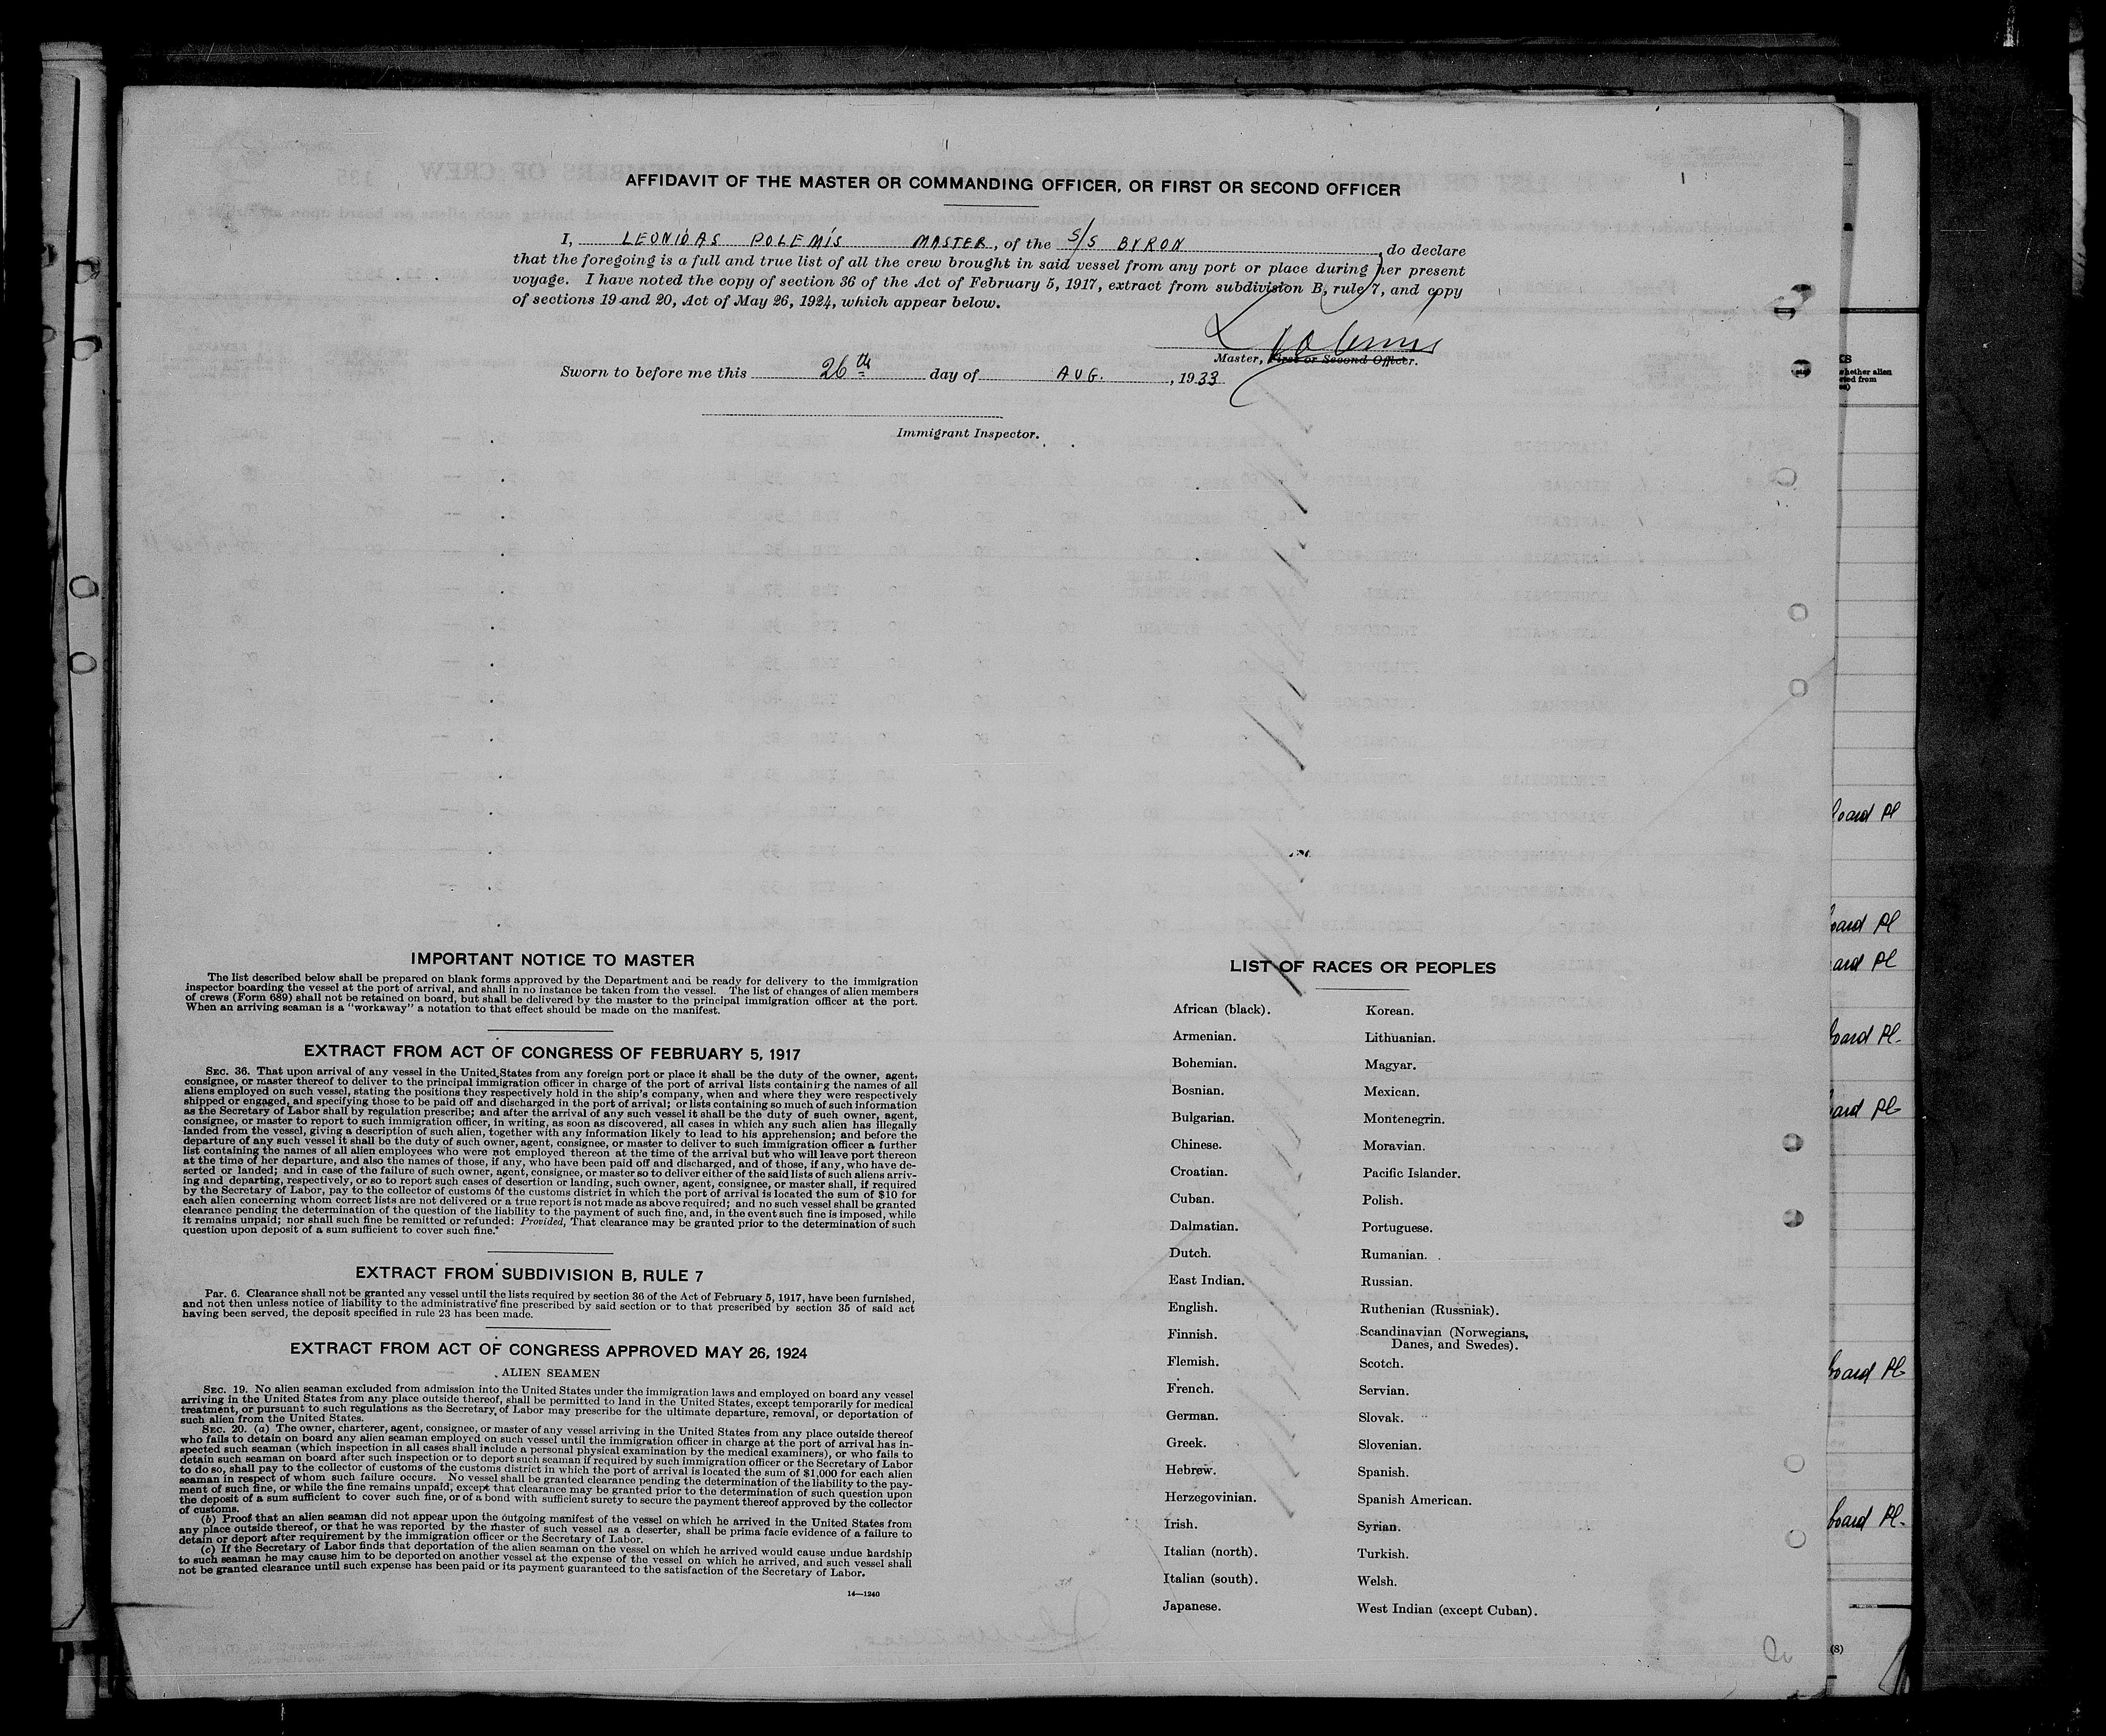 AFFIDAVIT OF THE MASTER OR COMMANDING OFFICER, OR FIRST OR SECOND OFFICER
I, LEONIDAS POLEMIS MASTER, of the S/S BYRON, do declare
that the foregoing is a full and true list of all the crew brought in said vessel from any port or place during her present
voyage. I have noted the copy of section 36 of the Act of February 5, 1917, extract from subdivision B, rule 7, and copy
of sections 19 and 20, Act of May 26, 1924, which appear below.
L Polemis
Master, First or Second Officer.
Sworn to before me this 26th day of AUG., 1933
Immigrant Inspector.
IMPORTANT NOTICE TO MASTER
The list described below shall be prepared on blank forms approved by the Department and be ready for delivery to the immigration
inspector boarding the vessel at the port of arrival, and shall in no instance be taken from the vessel. The list of changes of alien members
of crews (Form 689) shall not be retained on board, but shall be delivered by the master to the principal immigration officer at the port.
When an arriving seaman is a "workaway" a notation to that effect should be made on the manifest.
EXTRACT FROM ACT OF CONGRESS OF FEBRUARY 5, 1917
SEC. 36. That upon arrival of any vessel in the United States from any foreign port or place it shall be the duty of the owner, agent,
consignee, or master thereof to deliver to the principal immigration officer in charge of the port of arrival lists containing the names of all
aliens employed on such vessel, stating the positions they respectively hold in the ship's company, when and where they were respectively
shipped or engaged, and specifying those to be paid off and discharged in the port of arrival; or lists containing so much of such information
as the Secretary of Labor shall by regulation prescribe; and after the arrival of any such vessel it shall be the duty of such owner, agent,
consignee, or master to report to such immigration officer, in writing, as soon as discovered, all cases in which any such alien has illegally
landed from the vessel, giving a description of such alien, together with any information likely to lead to his apprehension; and before the
departure of any such vessel it shall be the duty of such owner, agent, consignee, or master to deliver to such immigration officer a further
list containing the names of all alien employees who were not employed thereon at the time of the arrival but who will leave port thereon
at the time of her departure, and also the names of those, if any, who have been paid off and discharged, and of those, if any, who have de-
serted or landed; and in case of the failure of such owner, agent, consignee, or master so to deliver either of the said lists of such aliens arriv-
ing and departing, respectively, or so to report such cases of desertion or landing, such owner, agent, consignee, or master shall, if required
by the Secretary of Labor, pay to the collector of customs of the customs district in which the port of arrival is located the sum of $10 for
each alien concerning whom correct lists are not delivered or a true report is not made as above required; and no such vessel shall be granted
clearance pending the determination of the question of the liability to the payment of such fine, and, in the event such fine is imposed, while
it remains unpaid; nor shall such fine be remitted or refunded: Provided, That clearance may be granted prior to the determination of such
question upon deposit of a sum sufficient to cover such fine.
EXTRACT FROM SUBDIVISION B, RULE 7
Par. 6. Clearance shall not be granted any vessel until the lists required by section 36 of the Act of February 5, 1917, have been furnished,
and not then unless notice of liability to the administrative fine prescribed by said section or to that prescribed by section 35 of said act
having been served, the deposit specified in rule 23 has been made.
EXTRACT FROM ACT OF CONGRESS APPROVED MAY 26, 1924
ALIEN SEAMEN
SEC. 19. No alien seaman excluded from admission into the United States under the immigration laws and employed on board any vessel
arriving in the United States from any place outside thereof, shall be permitted to land in the United States, except temporarily for medical
treatment, or pursuant to such regulations as the Secretary of Labor may prescribe for the ultimate departure, removal, or deportation of
such alien from the United States.
SEC. 20. (a) The owner, charterer, agent, consignee, or master of any vessel arriving in the United States from any place outside thereof
who fails to detain on board any alien seaman employed on such vessel until the immigration officer in charge at the port of arrival has in-
spected such seaman (which inspection in all cases shall include a personal physical examination by the medical examiners), or who fails to
detain such seaman on board after such inspection or to deport such seaman if required by such immigration officer or the Secretary of Labor
to do so, shall pay to the collector of customs of the customs district in which the port of arrival is located the sum of $1,000 for each alien
seaman in respect of whom such failure occurs. No vessel shall be granted clearance pending the determination of the liability to the pay-
ment of such fine, or while the fine remains unpaid, except that clearance may be granted prior to the determination of such question upon
the deposit of a sum sufficient to cover such fine, or of a bond with sufficient surety to secure the payment thereof approved by the collector
of customs.
(b) Proof that an alien seaman did not appear upon the outgoing manifest of the vessel on which he arrived in the United States from
any place outside thereof, or that he was reported by the master of such vessel as a deserter, shall be prima facie evidence of a failure to
detain or deport after requirement by the immigration officer or the Secretary of Labor.
(c) If the Secretary of Labor finds that deportation of the alien seaman on the vessel on which he arrived would cause undue hardship
to such seaman he may cause him to be deported on another vessel at the expense of the vessel on which he arrived, and such vessel shall
not be granted clearance until such expense has been paid or its payment guaranteed to the satisfaction of the Secretary of Labor.
14—1240
LIST OF RACES OR PEOPLES
African (black).
Armenian.
Bohemian.
Bosnian.
Bulgarian.
Chinese.
Croatian.
Cuban.
Dalmatian.
Dutch.
East Indian.
English.
Finnish.
Flemish.
French.
German.
Greek.
Hebrew.
Herzegovinian.
Irish.
Italian (north).
Italian (south).
Japanese.
Korean.
Lithuanian.
Magyar.
Mexican.
Montenegrin.
Moravian.
Pacific Islander.
Polish.
Portuguese.
Rumanian.
Russian.
Ruthenian (Russniak).
Scandinavian (Norwegians,
Danes, and Swedes).
Scotch.
Servian.
Slovak.
Slovenian.
Spanish.
Spanish American.
Syrian.
Turkish.
Welsh.
West Indian (except Cuban).
(8)